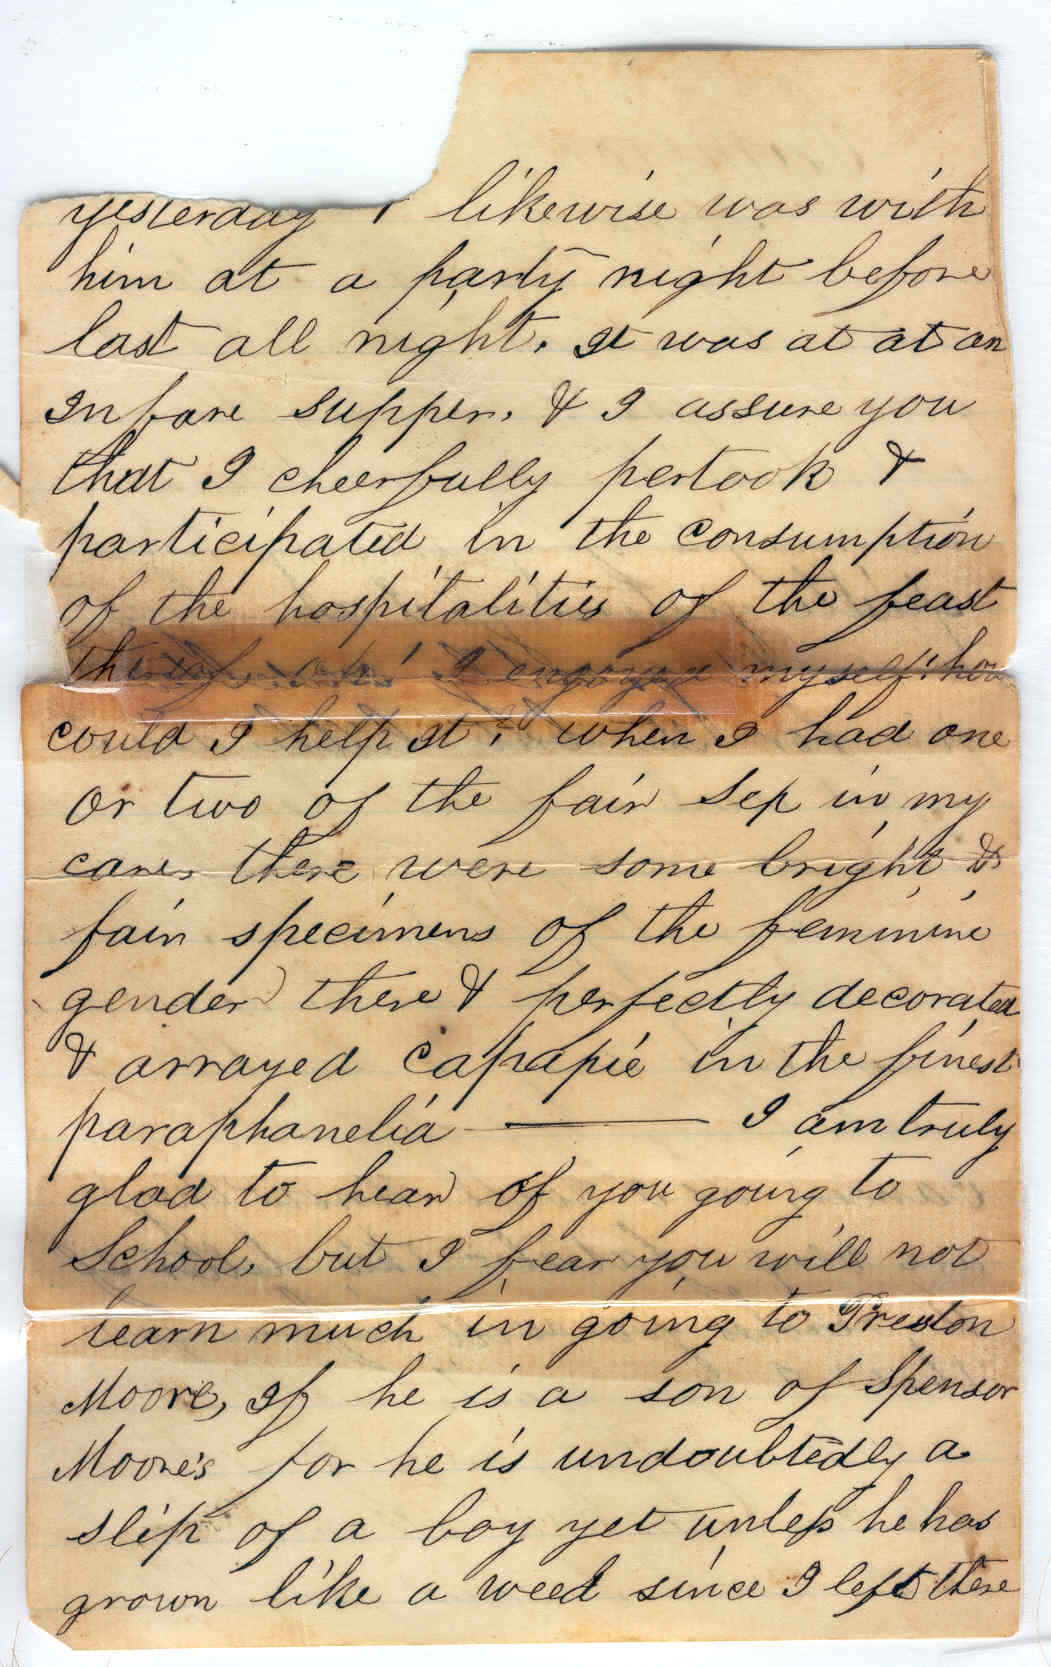 yesterday I likewise was with
him at a party night before
last all night. It was at at an
Infare supper. & I assure you
that I cheerfully pertook &
participated in the consumption
of the hospitalities of the feast
thereof. Oh! I engoyed myself! how
could I help it? when I had one
or two of the fair Sex in my
care. there were some bright &
fair specimens of the feminine
gender there & perfectly decorated
& arrayed capapie in the finest
paraphanelia —— I am truly
glad to hear of you going to
School, but I fear you will not
learn much in going to Preston
Moore, If he is a son of Spensor
Moore's for he is undoubtedly a
slip of a boy yet unless he has
grown like a weed since I left there